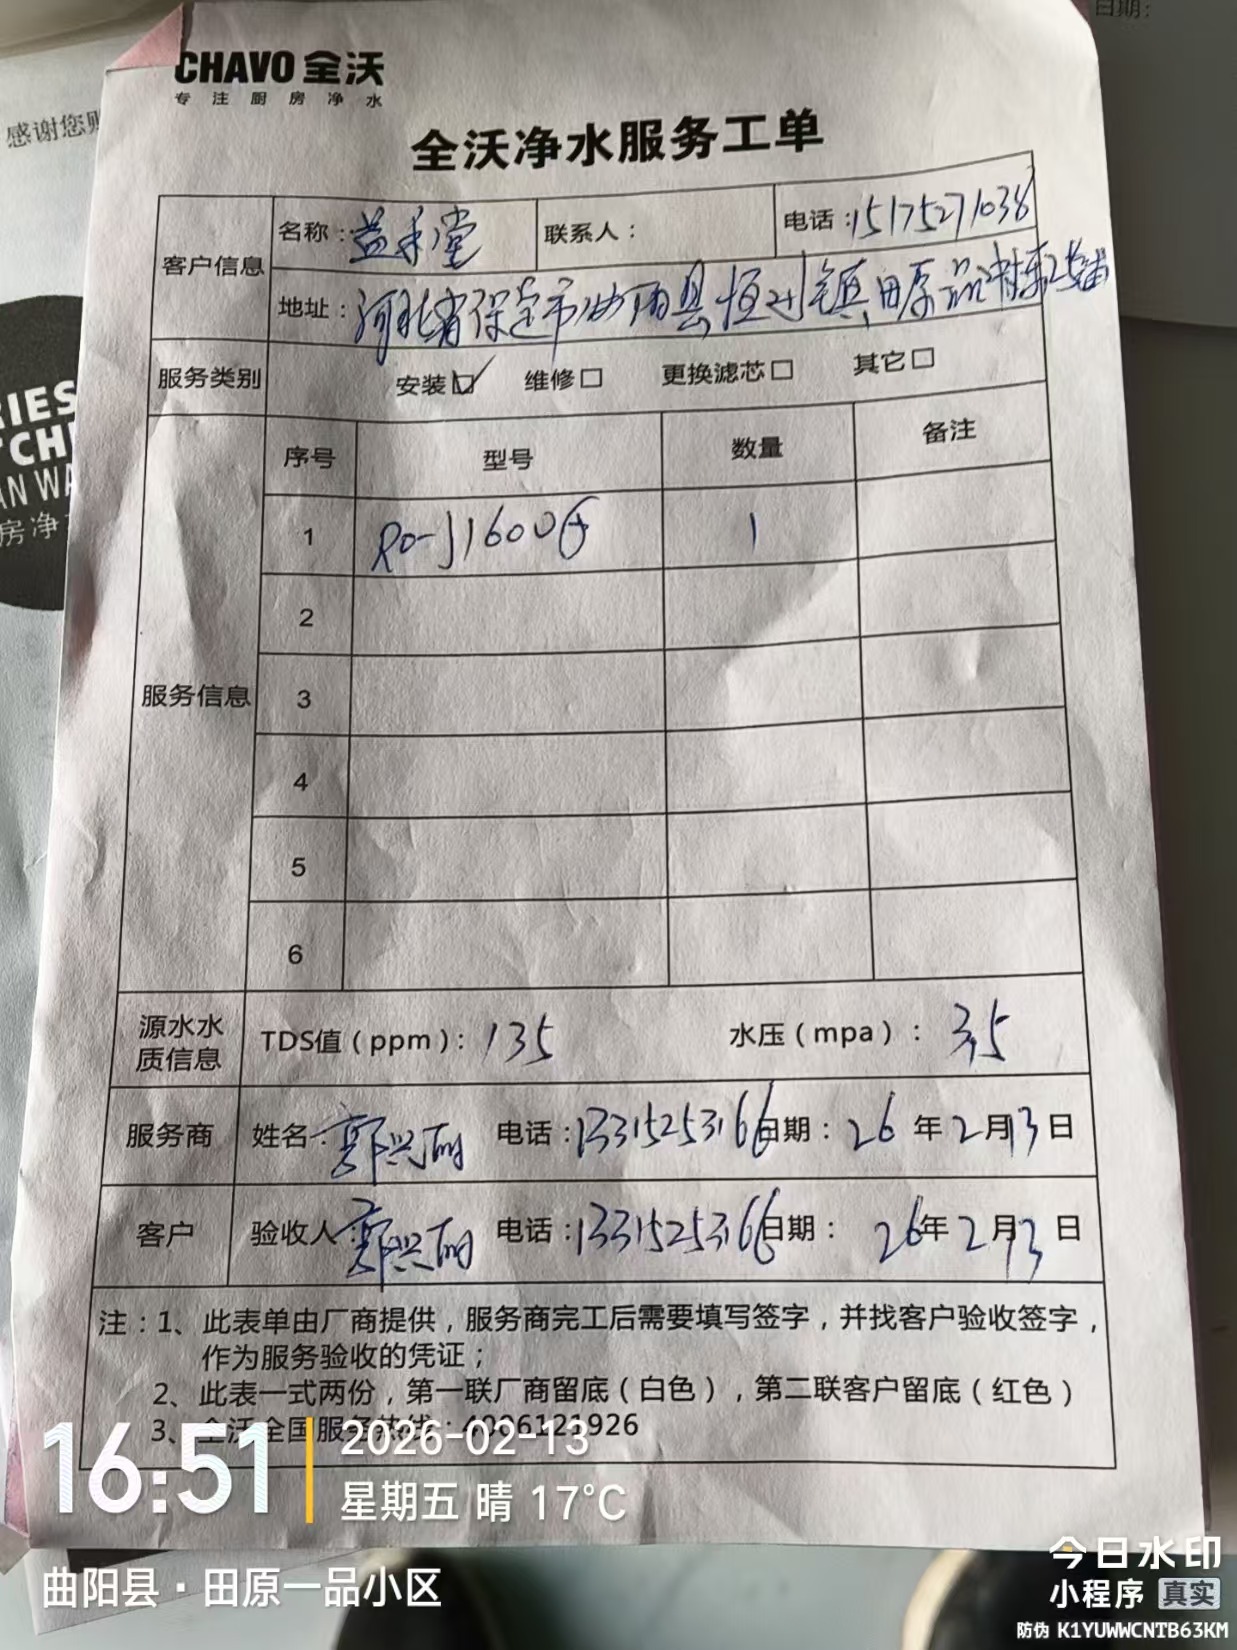 日期：
感谢您购
CHAVO 全沃
专注厨房净水
全沃净水服务工单
客户信息 名称：益禾堂 联系人： 电话：15175271038
地址：河北省保定市曲阳县恒州镇田原一品
服务类别 安装☑ 维修□ 更换滤芯□ 其它□
服务信息 序号 型号 数量 备注
1 RO-J1600 1
2
3
4
5
6
源水水质信息 TDS值（ppm）：135 水压（mpa）：3.5
服务商 姓名：郭兴丽 电话：13315253166 日期：26年2月13日
客户 验收人：郭兴丽 电话：13315253166 日期：26年2月13日
注：1、此表单由厂商提供，服务商完工后需要填写签字，并找客户验收签字，
作为服务验收的凭证；
2、此表一式两份，第一联厂商留底（白色），第二联客户留底（红色）
3、全沃全国服务热线：4006121926
RIES
TCH
AN WA
房净
16:51
2026-02-13
星期五 晴 17°C
曲阳县·田原一品小区
今日水印
小程序 真实
防伪 K1YUWWCNTB63KM